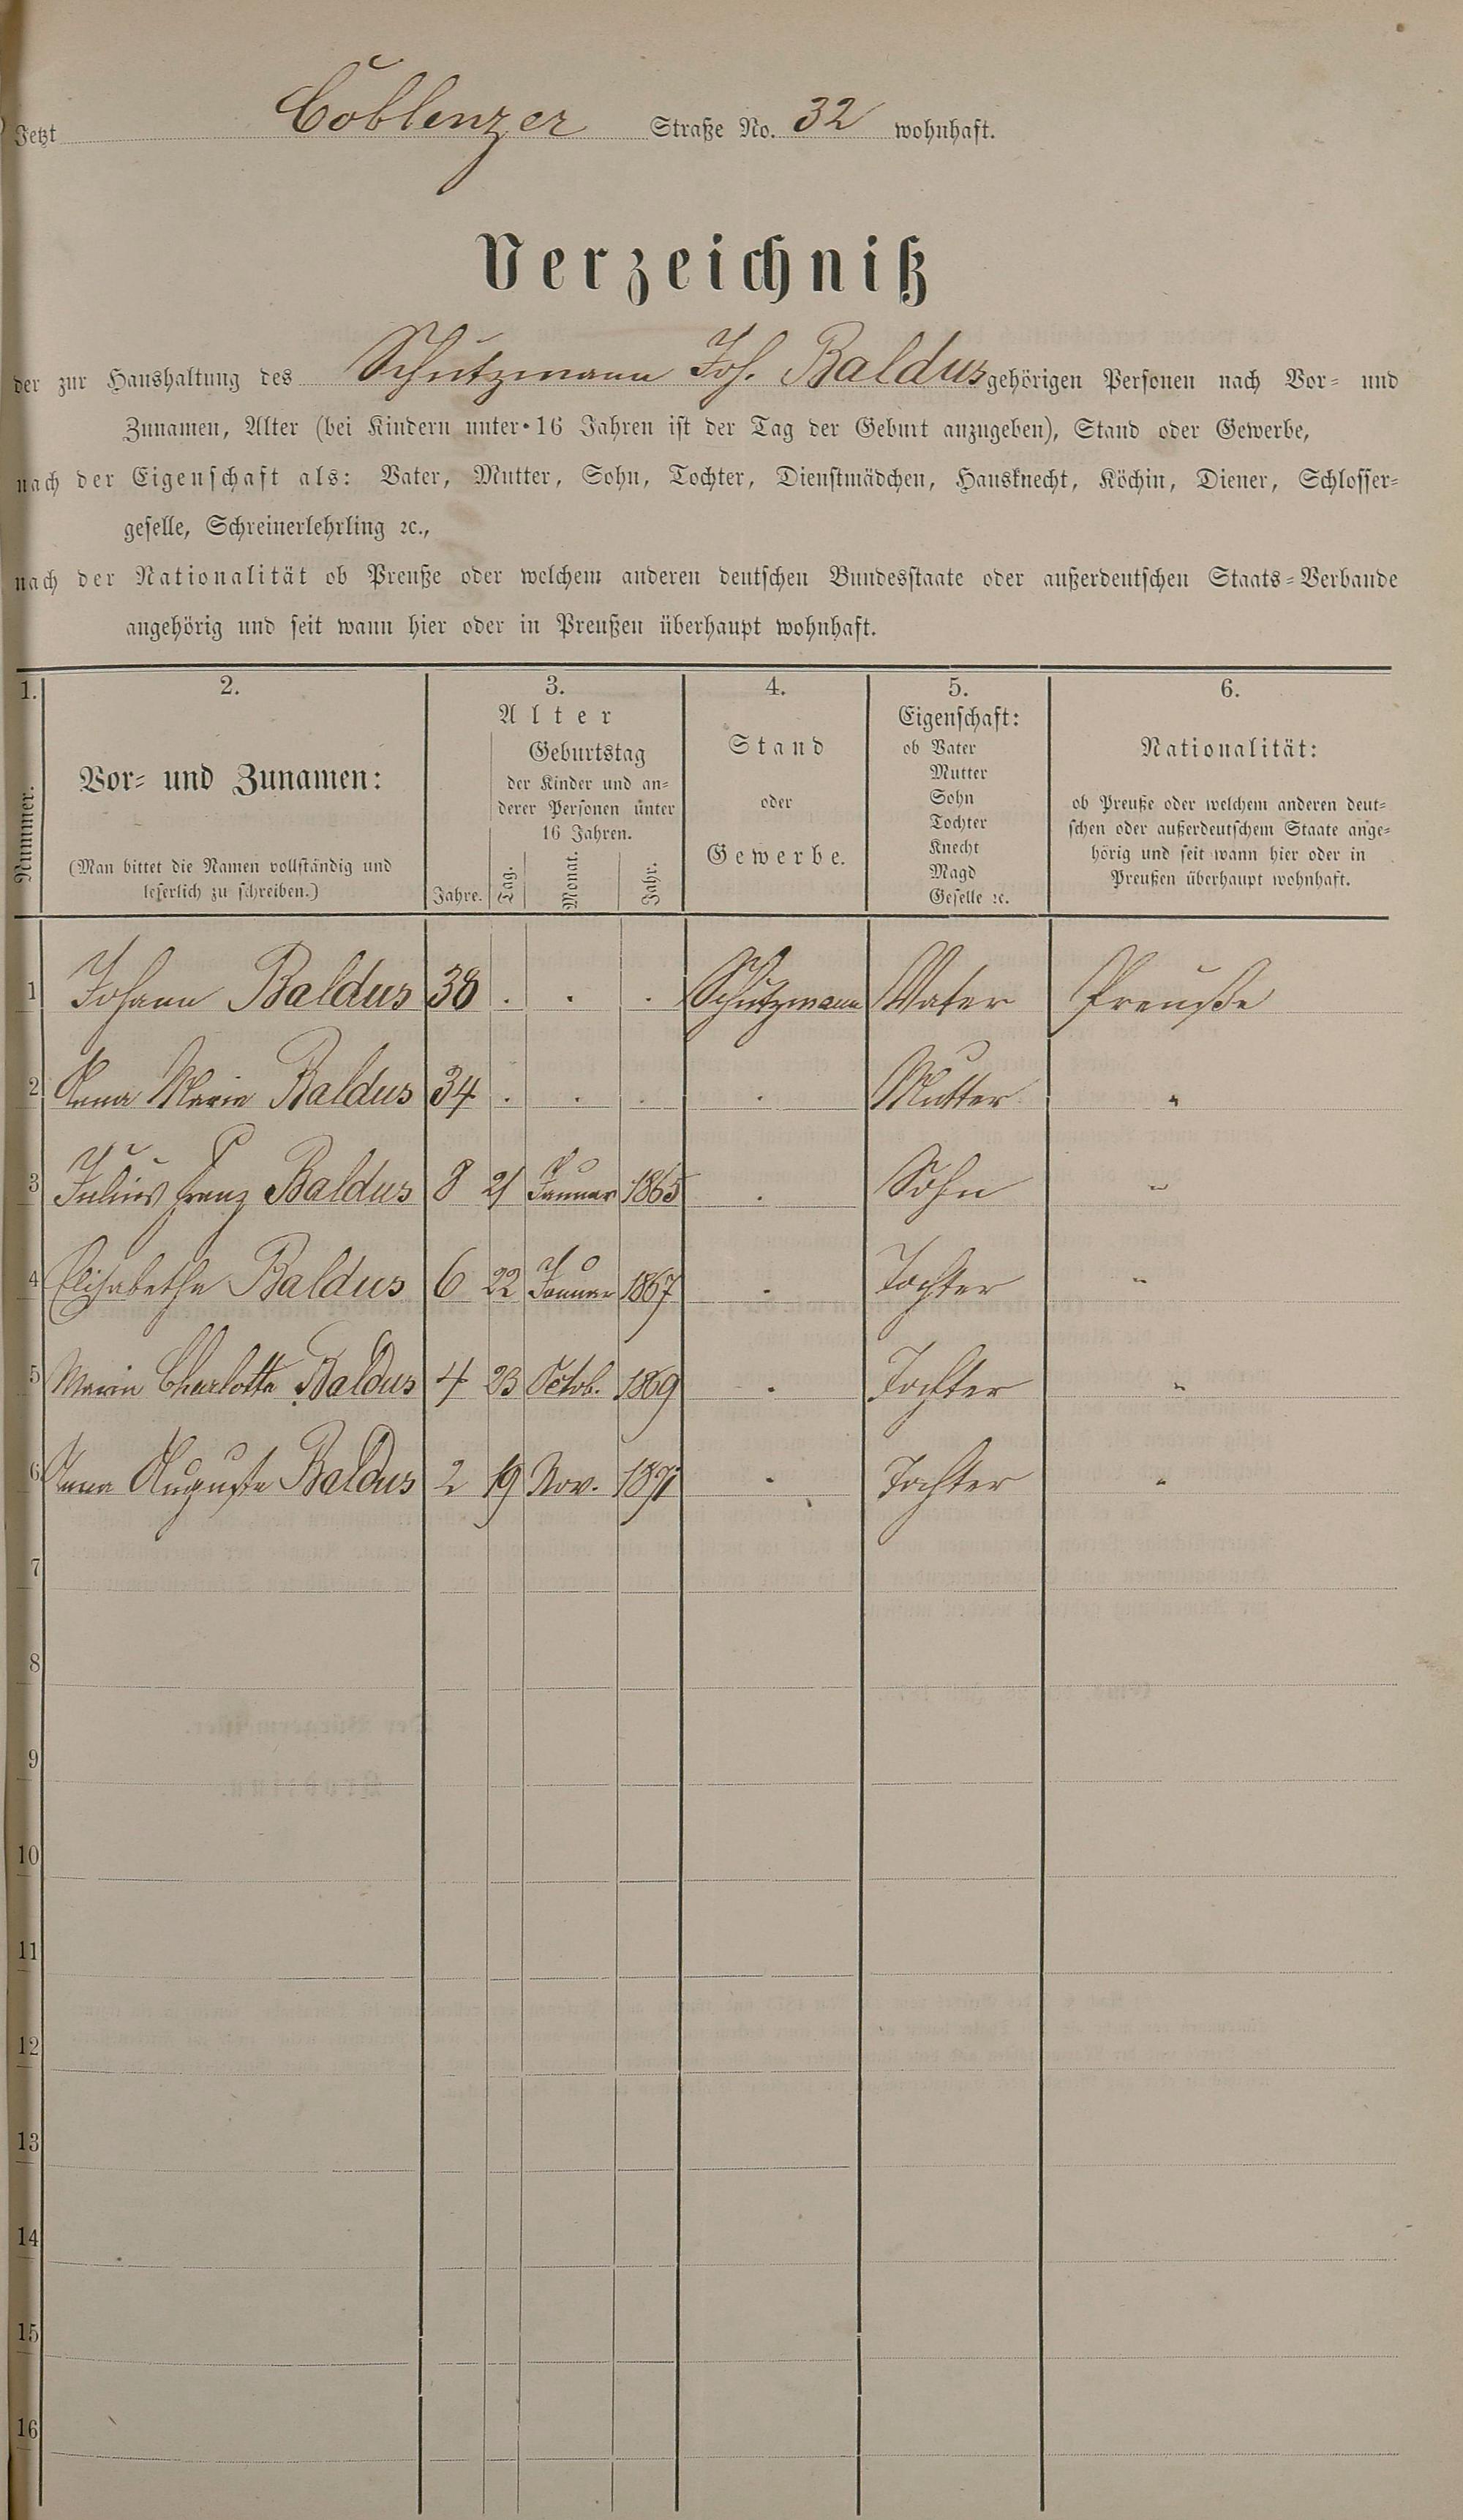 Jetzt Coblenzer Straße No. 32 wohnhaft.
Verzeichniß
der zur Haushaltung des Schutzmann Joh. Baldus gehörigen Personen nach Vor- und
Zunamen, Alter (bei Kindern unter 16 Jahren ist der Tag der Geburt anzugeben), Stand oder Gewerbe,
nach der Eigenschaft als: Vater, Mutter, Sohn, Tochter, Dienstmädchen, Hausknecht, Köchin, Diener, Schlosser-
geselle, Schreinerlehrling ꝛc.,
nach der Nationalität ob Preuße oder welchem anderen deutschen Bundesstaate oder außerdeutschen Staats-Verbande
angehörig und seit wann hier oder in Preußen überhaupt wohnhaft.
1.
Nummer.
2.
Vor- und Zunamen:
(Man bittet die Namen vollständig und
leserlich zu schreiben.)
3.
Alter
Jahre.
Geburtstag
der Kinder und an-
derer Personen unter
16 Jahren.
Tag. Monat. Jahr.
4.
Stand
oder
Gewerbe.
5.
Eigenschaft:
ob Vater
Mutter
Sohn
Tochter
Knecht
Magd
Geselle ꝛc.
6.
Nationalität:
ob Preuße oder welchem anderen deut-
schen oder außerdeutschem Staate ange-
hörig und seit wann hier oder in
Preußen überhaupt wohnhaft.
1 Johann Baldus 38 . . . Schutzmann Vater Preuße
2 Anna Maria Baldus 34 . . . . Mutter "
3 Julius Franz Baldus 8 21 Januar 1865 . Sohn "
4 Elisabetha Baldus 6 22 Januar 1867 . Tochter "
5 Maria Charlotta Baldus 4 23 Octob. 1869 . Tochter "
6 Anna Augusta Baldus 2 19 Nov. 1871 . Tochter "
7
8
9
10
11
12
13
14
15
16